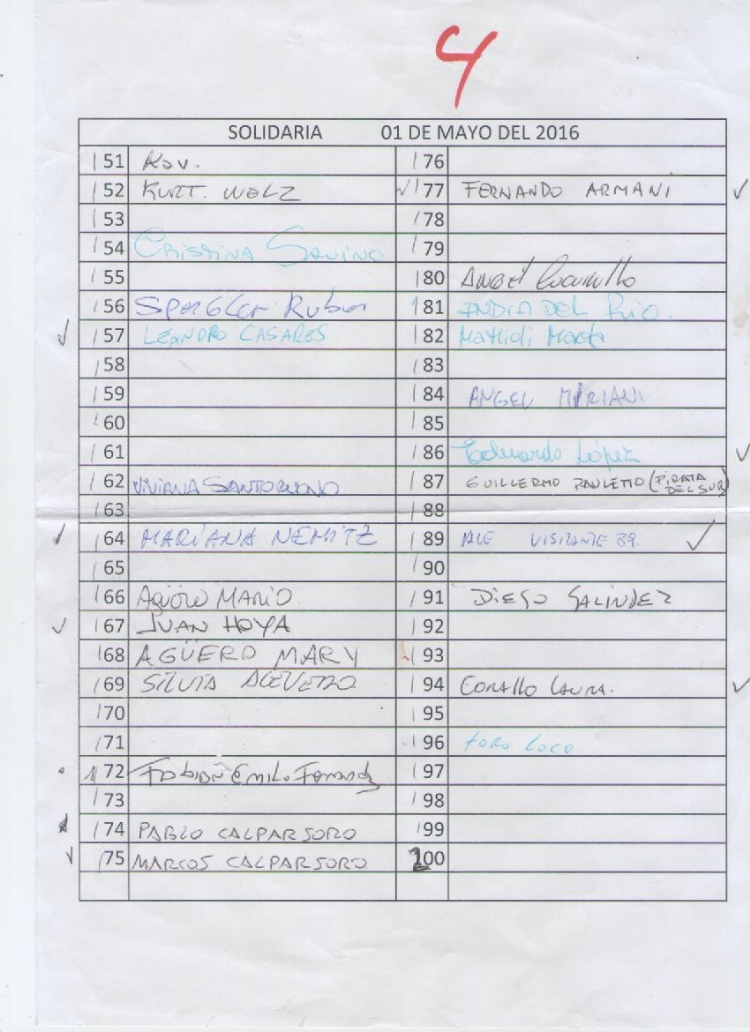 4
SOLIDARIA 01 DE MAYO DEL 2016
151 Rav.
152 KURT. WELZ
153
154 CRISTINA SAVINO
155
156 SPENGLER RUBEN
157 LEANDRO CASARES
158
159
160
161
162 VIVIANA
163
164 MARIANA NEMITZ
165
166 AGÜERO MARIO.
167 JUAN HOYA
168 AGÜERO MARY
169 SILVIA ACEVEDO
170
171
172 FABIAN Emilio
173
174 PABLO CALPARSORO
175 MARCOS CALPARSORO
176
177 FERNANDO ARMANI
178
179
180 ANGEL
181 INDIA DEL RIO.
182
183
184 ANGEL MARIANI
185
186 Eduardo López
187 GUILLERMO PAULETTO (PIRATA DEL SUR)
188
189 ALE VISITANTE 89.
190
191 DIEGO GALINDEZ
192
193
194 CORALLO LAURA.
195
196 TORO LOCO
197
198
199
200